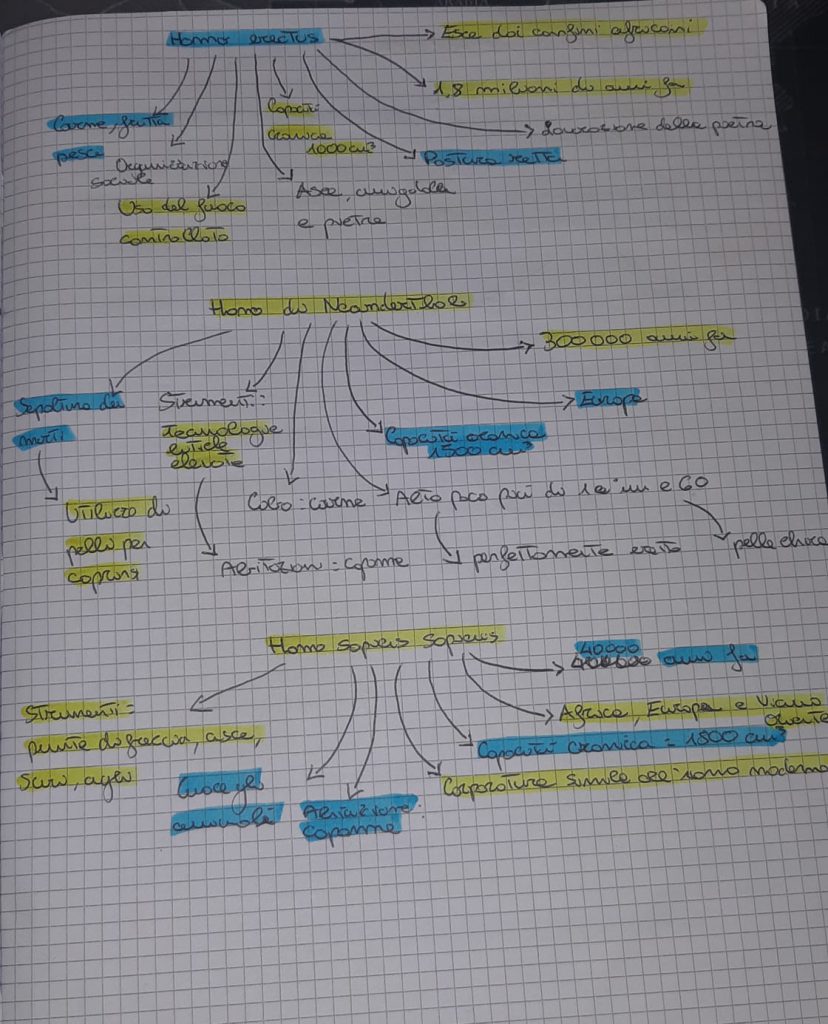 Homo erectus
Esce dai confini africani
1,8 milioni di anni fa
Lavorazione della pietra
Postura retta
Carne, frutta
pesca
Organizzazione
sociale
Uso del fuoco
controllato
Capacità
cranica
1000 cm³
Asce, amigdale
e pietre
Homo di Neanderthal
300000 anni fa
Europa
Capacità cranica
1500 cm³
Sepoltura dei
morti
Strumenti:
tecnologie
elevate
Utilizzo di
pelli per
coprirsi
Cibo: carne
Alto poco più di 1 e 60
Abitazioni = capanne
perfettamente eretto
pelle chiara
Homo Sapiens Sapiens
40000
anni fa
Africa, Europa e Vicino
Oriente
Capacità cranica = 1500 cm³
Corporatura simile all'uomo moderno
Strumenti =
punte di freccia, asce,
scuri, aghi
Cuoce gli
animali
Abitazione:
capanne